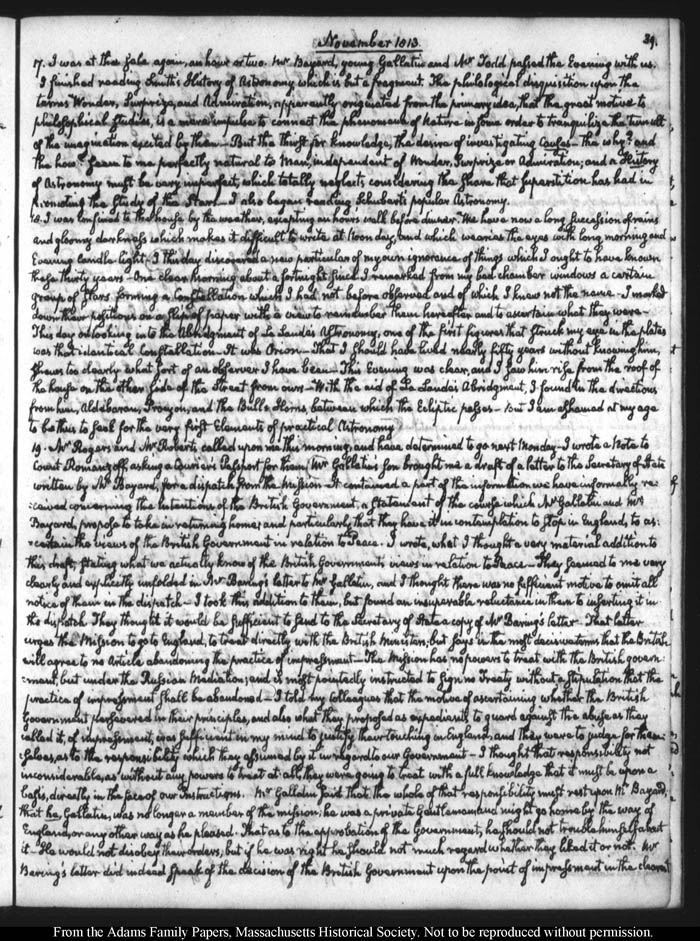 November 1813.
39.
17. I was at the sale again, an hour or two. Mr Bayard, young Gallatin and Mr Todd passed the Evening with us.
I finished reading Smith's History of Astronomy which is but a fragment. The philological disquisition upon the
terms Wonder, Surprize, and Admiration, apparently originated from the primary idea, that the great motive to
philosophical studies, is a mere impulse to connect the phenomena of Nature in some order to tranquilize the tumult
of the imagination excited by them. But the thirst for knowledge, the desire of investigating Causes—the why? and
the how? seem to me perfectly natural to Man, independent of Wonder, Surprize or Admiration; and a History
of Astronomy must be very imperfect, which totally neglects considering the share that Superstition has had in
promoting the Study of the Stars—I also began reading Schubert's popular Astronomy.
18. I was confined to the house by the weather, excepting an hours walk before dinner. We have now a long succession of rains
and gloomy darkness which makes it difficult to write at Noon day, and which wearies the eyes with long morning and
Evening candle-light—I this day discovered a new particular of my own ignorance of things which I ought to have known
these thirty years—One clear morning about a fortnight since I remarked from my bed chamber windows a certain
group of Stars forming a Constellation which I had not before observed and of which I knew not the name—I marked
down their positions on a slip of paper with a view to remember them hereafter and to ascertain what they were—
This day on looking into the Abridgment of La Lande's Astronomy, one of the first figures that struck my eye in the plates
was that identical Constellation—It was Orion—That I should have lived nearly fifty years without knowing him,
shews too clearly what sort of an observer I have been—This Evening was clear, and I saw him rise from the roof of
the house on the other side of the Street from ours—With the aid of La Lande's Abridgment, I found in the directions
from him, Aldebaran, Procyon, and the Bull's Horns, between which the Ecliptic passes—But I am ashamed at my age
to be thus to seek for the very first Elements of practical Astronomy.
19. Mr Rogers and Mr Roberts called upon me this morning, and have determined to go next Monday—I wrote a Note to
Count Romanzoff, asking a Courier's Passport for them. Mr Gallatin's son brought me a draft of a letter to the Secretary of State
written by Mr Bayard, for a dispatch from the Mission—It contained a part of the information we have informally re-
-ceived concerning the Intentions of the British Government, a Statement of the course which Mr Gallatin and Mr
Bayard, propose to take in returning home; and particularly that they have it in contemplation to stop in England, to as-
-certain the views of the British Government in relation to Peace—I wrote, what I thought a very material addition to
this draft, stating what we actually know of the British Government's views in relation to Peace—They seemed to me very
clearly and explicitly unfolded in Mr Baring's letter to Mr Gallatin, and I thought there was no sufficient motive to omit all
notice of them in the dispatch—I took this addition to them, but found an insuperable reluctance in them to inserting it in
the dispatch. They thought it would be sufficient to send to the Secretary of State a copy of Mr Baring's letter—That letter
urges the Mission to go to England, to treat directly with the British Ministers, but says in the most decisive terms that the British
will agree to no Article abandoning the practice of impressment—The Mission has no powers to treat with the British govern-
-ment, but under the Russian Mediation; and is most pointedly instructed to sign no Treaty without a stipulation that the
practice of impressment shall be abandoned—I told my colleagues that the motive of ascertaining whether the British
Government persevered in their principles, and also what they proposed as expedients to guard against the abuse as they
called it, of impressment, was sufficient in my mind to justify their touching in England, and they were to judge for them-
-selves, as to the responsibility which they assumed by it in regard to our Government—I thought that responsibility not
inconsiderable, as without any powers to treat at all, they were going to treat with a full knowledge that it must be upon a
basis, directly in the face of our Instructions. Mr Gallatin said that the whole of that responsibility must rest upon Mr Bayard,
that he, Gallatin, was no longer a member of the mission; he was a private Gentleman and might go home by the way of
England, or any other way as he pleased. That as to the approbation of the Government, he should not trouble himself about
it—He would not disobey their orders, but if he was right he should not much regard whether they liked it or not. Mr
Baring's letter did indeed speak of the decision of the British Government upon the point of impressment in the clearest
From the Adams Family Papers, Massachusetts Historical Society. Not to be reproduced without permission.